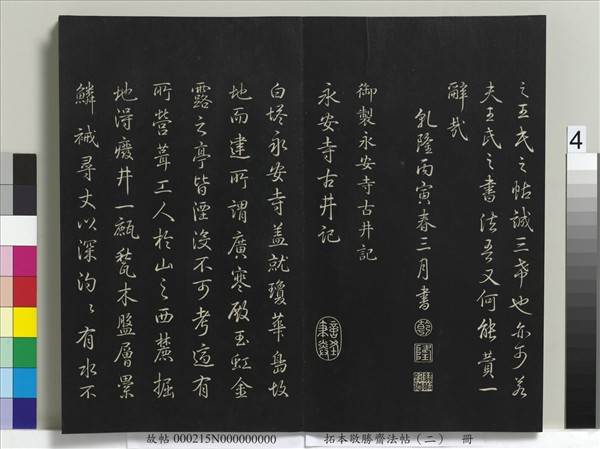 之王氏之帖誠三希也亦可為
夫王氏之書法吾又何能贊一
辭哉
乾隆丙寅春三月書
乾
隆
御製永安寺古井記
永安寺古井記
白塔永安寺蓋就瓊華島故
地而建所謂廣寒殿玉虹金
露之亭皆湮沒不可考適有
所營葺工人於山之西麓掘
地得廢井一瓴甃木盤層累
鱗襯尋丈以深沟沟有水不
故帖 000215N000000000
拓本敬勝齋法帖（二） 冊
4